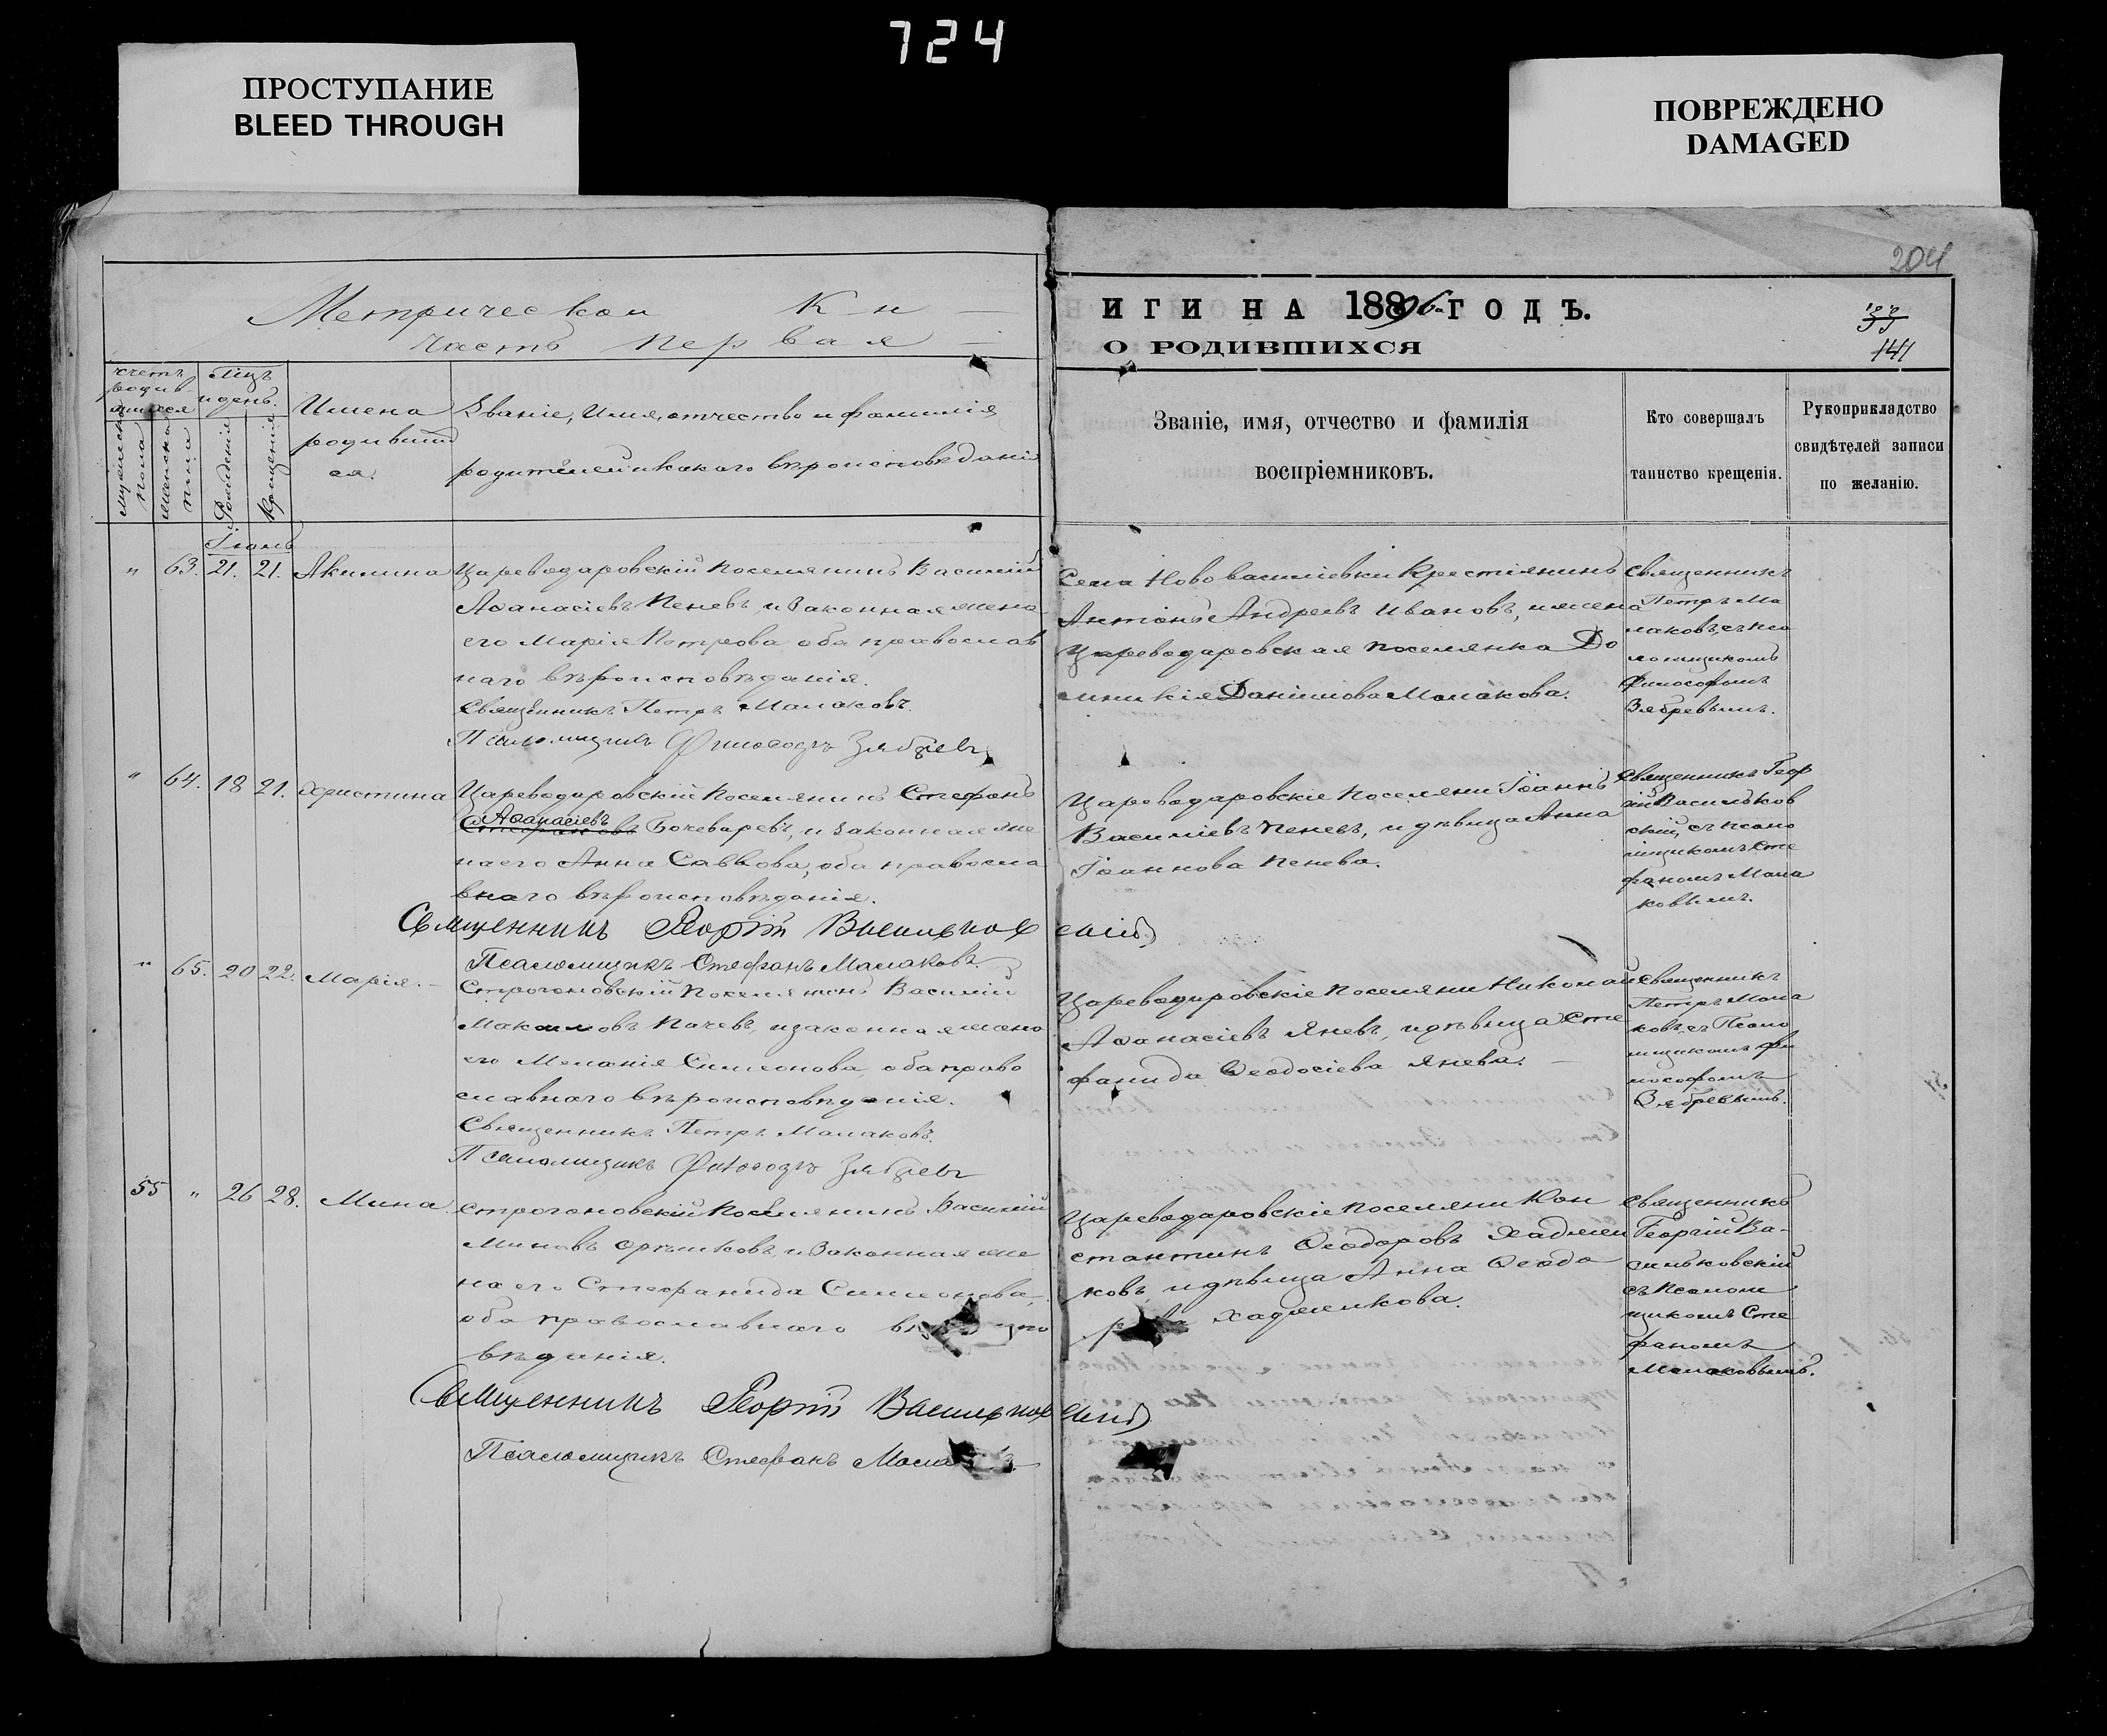 724
ПРОСТУПАНИЕ
BLEED THROUGH
ПОВРЕЖДЕНО
DAMAGED
204
Метрической Кн
часть первая
счетъ
родив-
шихся
Мцъ
и день.
Мужеска
пола
Женска
пола
Рожденія
Крещенія
Имена
родивши
ся.
Званіе, имя, отчество и фамилія
родителей и какого вѣроисповѣданія
И Г И Н А 1896 Г О Д Ъ.
О РОДИВШИХСЯ
141
Званіе, имя, отчество и фамилія
воспріемниковъ.
Кто совершалъ
таинство крещенія.
Рукоприкладство
свидѣтелей записи
по желанію.
Іюнь
" 63. 21. 21. Акилина
Цареводаровскій поселянинъ Василій
Аѳанасіевъ Пеневъ, и законная жена
его Марія Петрова, оба православ
наго вѣроисповѣданія.
Священникъ Петръ Малаковъ.
Псаломщикъ Философъ Зябревъ
Села Ново васильевки крестіянинъ
Антонъ Андреевъ Ивановъ, и жена
Цареводаровская поселянка До
мникія Даніилова Малакова.
Священникъ
Петръ Ма
лаковъ, съ пса
ломщикомъ
Философомъ
Зябревымъ.
" 64. 18 21. Христина
Цареводаровскій поселянинъ Стефанъ
Аѳанасіевъ
Стефановъ Бочеваревъ, и законная же
на его Анна Саввова, оба правосла
внаго вѣроисповѣданія.
Священникъ Георгій Васильковскій
Псаломщикъ Стефанъ Малаковъ.
Цареводаровскіе поселяни Іоаннъ
Василіевъ Пеневъ, и дѣвица Анна
Іоаннова Пенева.
Священникъ Геор
гій Васильков
скій, съ псало
мщикомъ Сте
фаномъ Мала
ковымъ.
" 65. 20 22. Марія.
Строгоновскій поселянинъ Василій
Пачевъ, и законная жена
его Меланія Симеонова, оба право
славнаго вѣроисповѣданія.
Священникъ Петръ Малаковъ.
Псаломщикъ Философъ Зябревъ
Цареводаровскіе поселяни Николай
Аѳанасіевъ Яневъ, и дѣвица Сте
фанида Ѳеодосіева Янева.
Священникъ
Петръ Мала
ковъ, съ Псало
мщикомъ Фи
лософомъ
Зябревымъ.
55 " 26 28. Мина
Строгоновскій поселянинъ Василій
Миновъ и законная же
на его Стефанида Симеонова,
оба православнаго
вѣданія.
Священникъ Георгій Васильковскій
Псаломщикъ Стефанъ
Цареводаровскіе поселяни Кон
стантинъ Ѳеодоровъ Хаджи
ковъ, и дѣвица Анна Ѳеодо
Хаджикова.
Священникъ
Георгій Ва-
сильковскій
съ Псалом
щикомъ Сте
фаномъ
Малаковымъ.